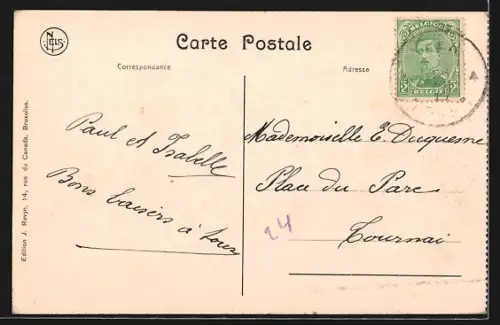 NELS
Carte Postale
Correspondance
Adresse
BELGIQUE
5 5
BELGIË
Paul et Isabelle
Bons baisers à tous
Mademoiselle E. Duquesne
Place du Parc
24
Tournai
Edition J. Rwyn, 14, rue du Canada, Bruxelles.